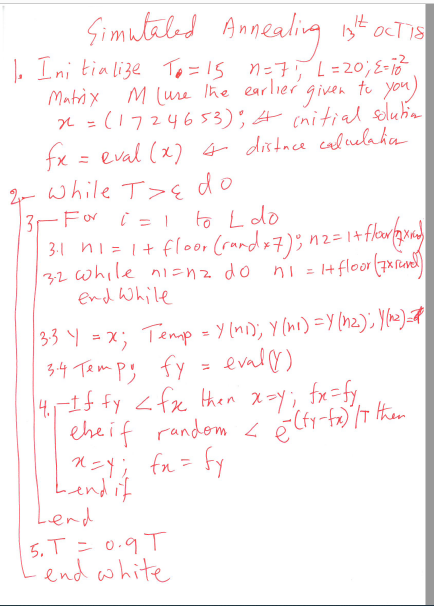 Simutaled Annealing 13th OCT 18
1. Initialize T0 = 15 n=7; L=20; ε=10^-2
Matrix M (use the earlier given to you)
x = (1 7 2 4 6 5 3); ← initial solution
fx = eval(x) ← distnce calculation
2. while T > ε do
3. For i = 1 to L do
3.1 n1 = 1 + floor(rand*7); n2 = 1 + floor(7xrand)
3.2 while n1=n2 do n1 = 1+floor(7xrand)
end while
3.3 Y = x; Temp = Y(n1); Y(n1) = Y(n2); Y(n2)=
3.4 Temp; fy = eval(Y)
4. If fy < fx then x=y; fx=fy
else if random < e^-(fy-fx)/T then
x=y; fx = fy
end if
end
5. T = 0.9T
end while